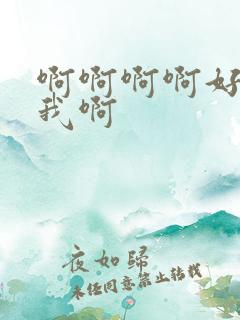 啊啊啊啊好
我啊
夜如歸
未经同意禁止转载